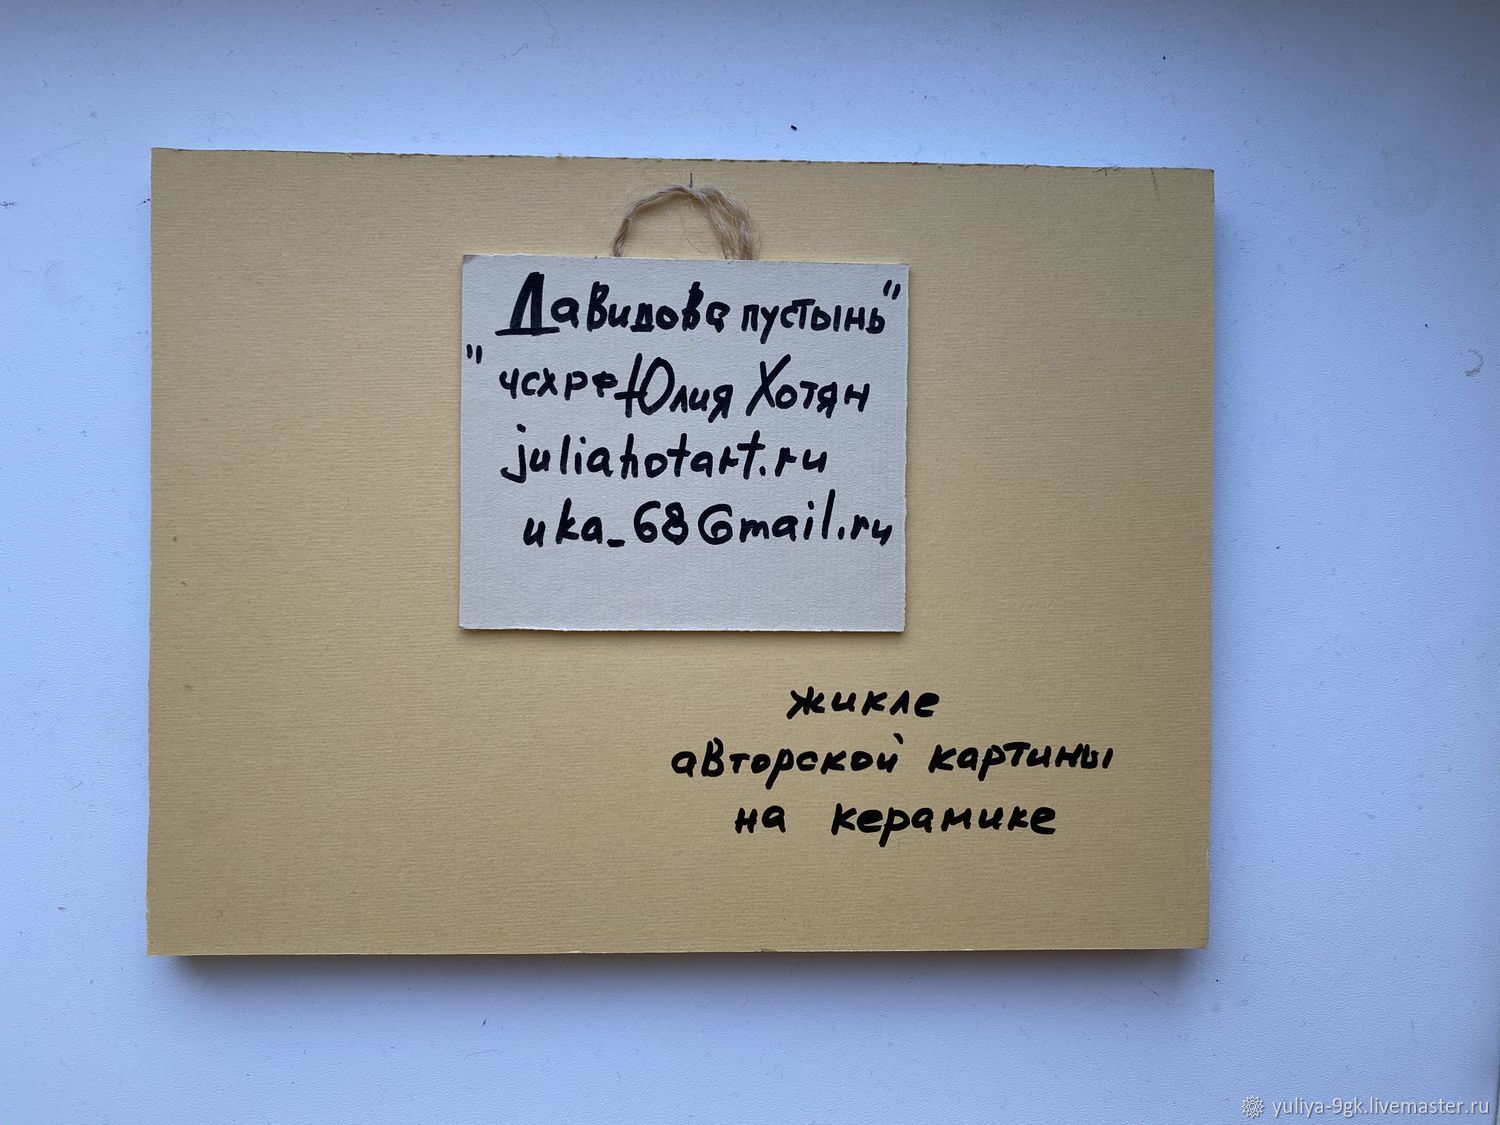 Давидова пустынь"
" чсхрф Юлия Хотян
juliahotart.ru
uka_68@mail.ru
жикле
авторской картины
на керамике
yuliya-9gk.livemaster.ru